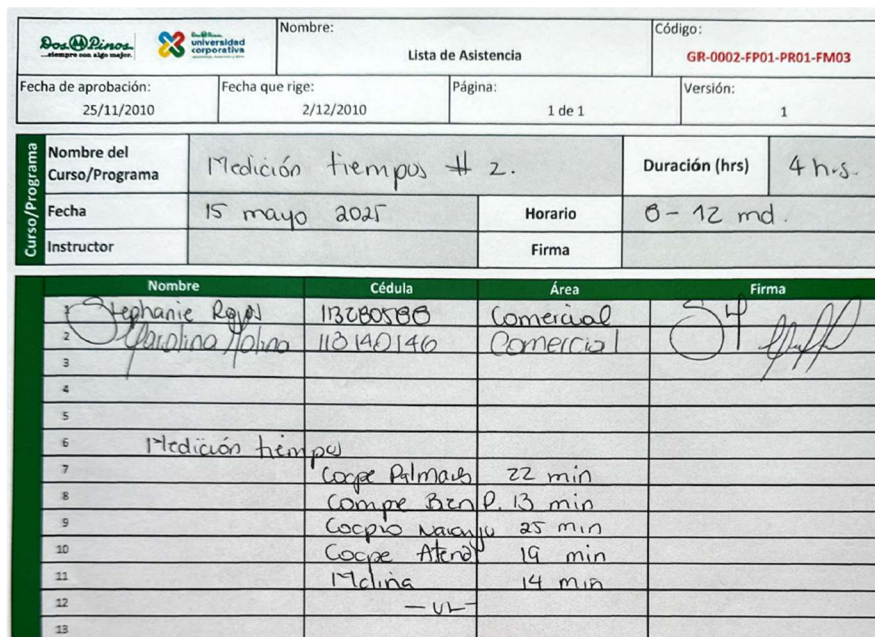 Dos Pinos
...siempre con algo mejor.
Dos Pinos
universidad
corporativa
Nombre:
Lista de Asistencia
Código:
GR-0002-FP01-PR01-FM03
Fecha de aprobación:
25/11/2010
Fecha que rige:
2/12/2010
Página:
1 de 1
Versión:
1
Curso/Programa
Nombre del
Curso/Programa
Medición tiempos # 2.
Duración (hrs)
4 hrs.
Fecha
15 mayo 2025
Horario
8 - 12 md.
Instructor
Firma
Nombre Cédula Área Firma
1 Stephanie Rojas 113280588 Comercial
2 Carolina Molina 113140146 Comercial
3
4
5
6 Medición tiempos
7 Coope Palmares 22 min
8 Compre Bien P. 13 min
9 Naranjo 25 min
10 Coope 19 min
11 Molina 14 min
12
13